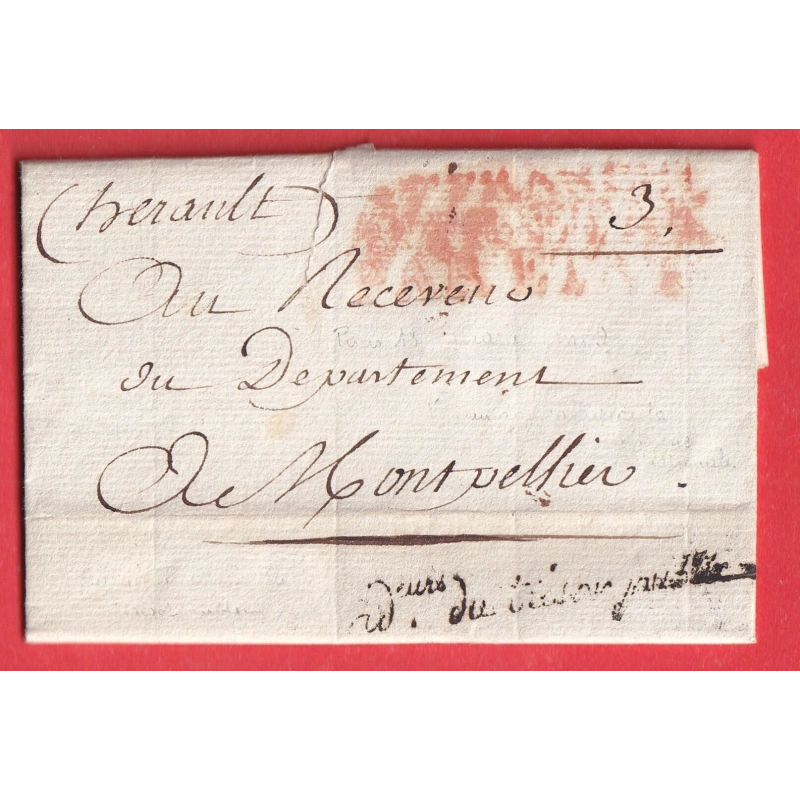 (herault)
3,
Au Receveur
du Departement
A Montpellier.
deurs. du tresor public